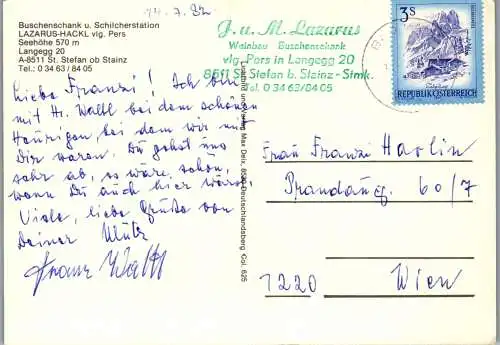 14.7.82
Buschenschank u. Schilcherstation
LAZARUS-HACKL vlg. Pers
Seehöhe 570 m
Langegg 20
A-8511 St. Stefan ob Stainz
Tel.: 0 34 63 / 84 05
J. u. M. Lazarus
Weinbau Buschenschank
vlg. Pers in Langegg 20
8511 St. Stefan b. Stainz - Stmk.
Tel. 0 34 63/84 05
3 S
REPUBLIK ÖSTERREICH
Liebe Franzi! Ich bin
mit Hr. Waltl bei dem schönen
Heurigen, bei dem wir mit
Dir waren. Du gehst uns
sehr ab, es wäre schön,
wenn Du auch hier wärst.
Viele, liebe Grüße von
Deiner
Franz Waltl
Max Deix, 8530 Deutschlandsberg Gol. 625
Frau Franzi Harlin
Prandaug. 60/7
1220 Wien